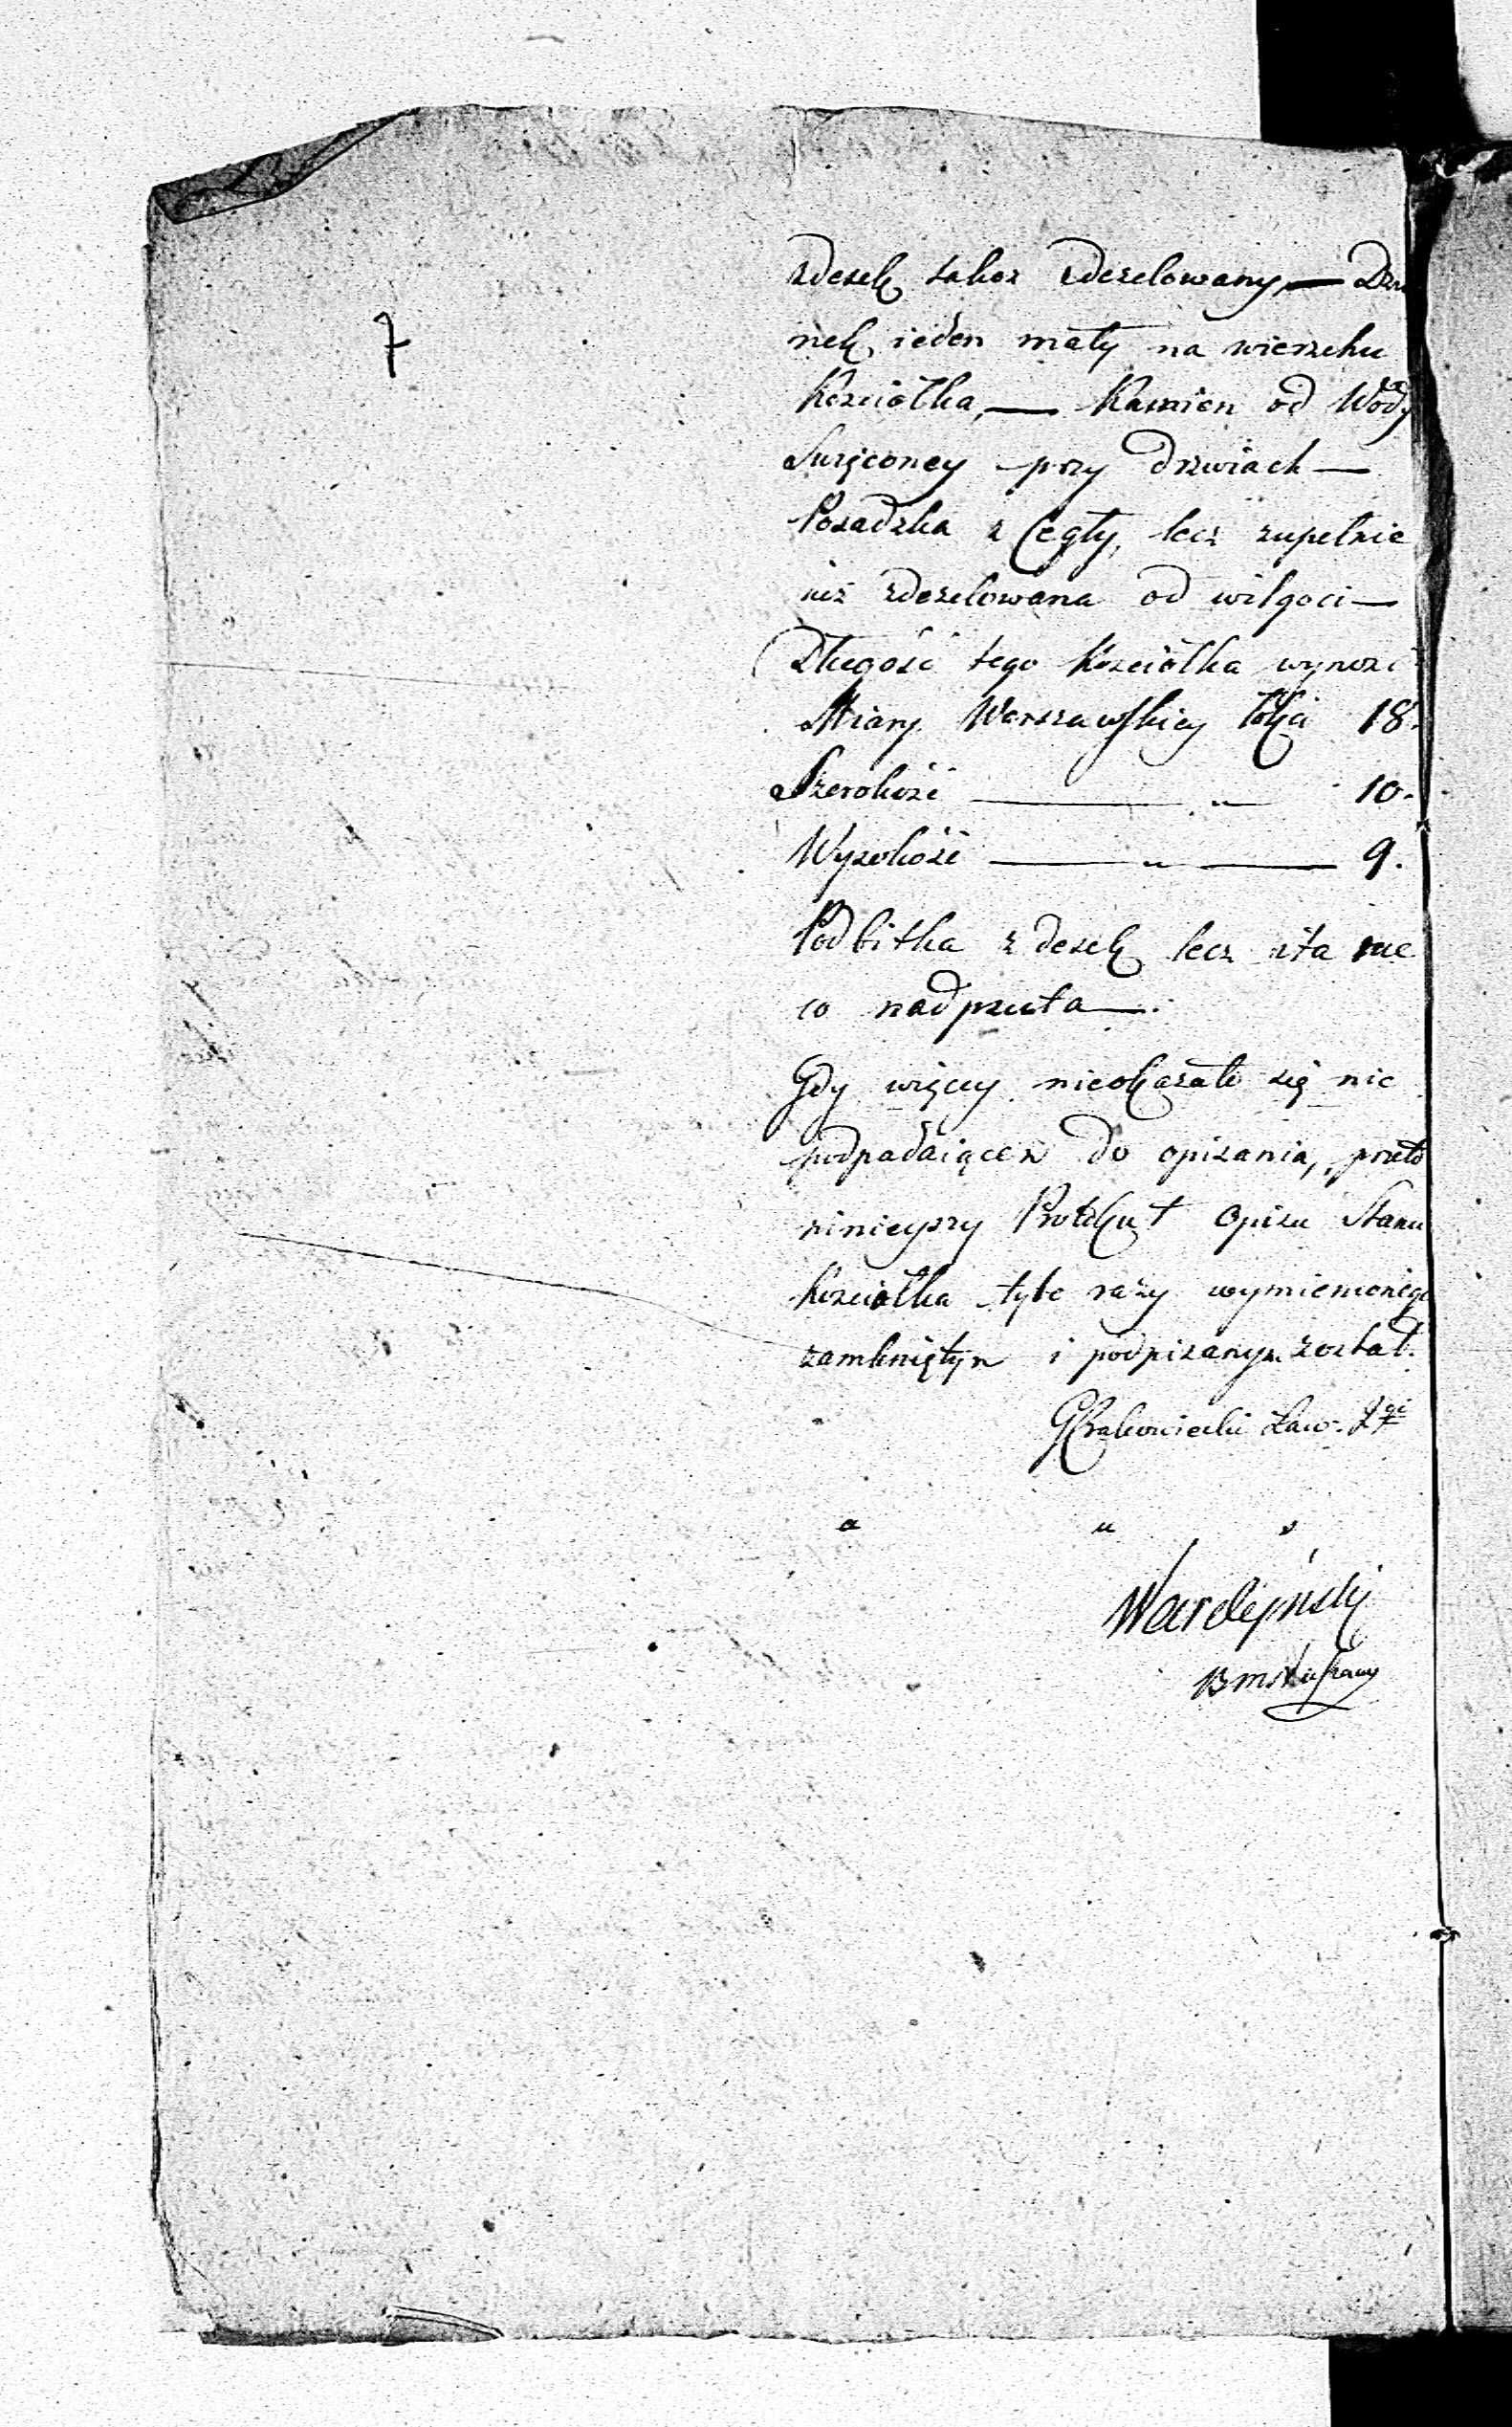 7
zdesek takoż zdezelowany, — Dzw
nek ieden mały na wierzchu
Kościołka, — Kamien od Wody
Swięconey przy drzwiach —
Posadzka z Cegły, lecz zupełnie
iuż zdezelowana od wilgoci —
Długość tego Kościołka wynosi
Miary Warszawskiey Łokci 18.
Szerokość — „ — 10.
Wysokość — „ — 9.
Podbitka z desek lecz zła nie
co nadpsuta —.
Gdy więcey nieokazało się nic
podpadaiącem do opisania, przeto
ninieyszy Protokuł Opisu Stanu
Kościołka tyle razy wymienionego
zamkniętym i podpisanym został.
Ław. 2gi
Wardęński